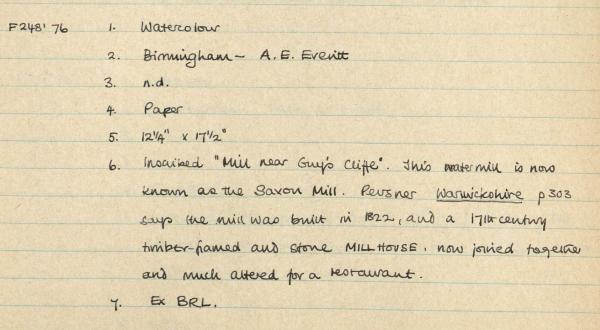 F248'76 1. Watercolour
2. Birmingham - A.E. Everitt
3. n.d.
4. Paper
5. 12¼" x 17½"
6. Inscribed "Mill near Guy's Cliffe". This watermill is now
known as the Saxon Mill. Pevsner Warwickshire p303
says the mill was built in 1822, and a 17th century
timber-framed and stone MILLHOUSE. now joined together
and much altered for a restaurant.
7. Ex BRL.